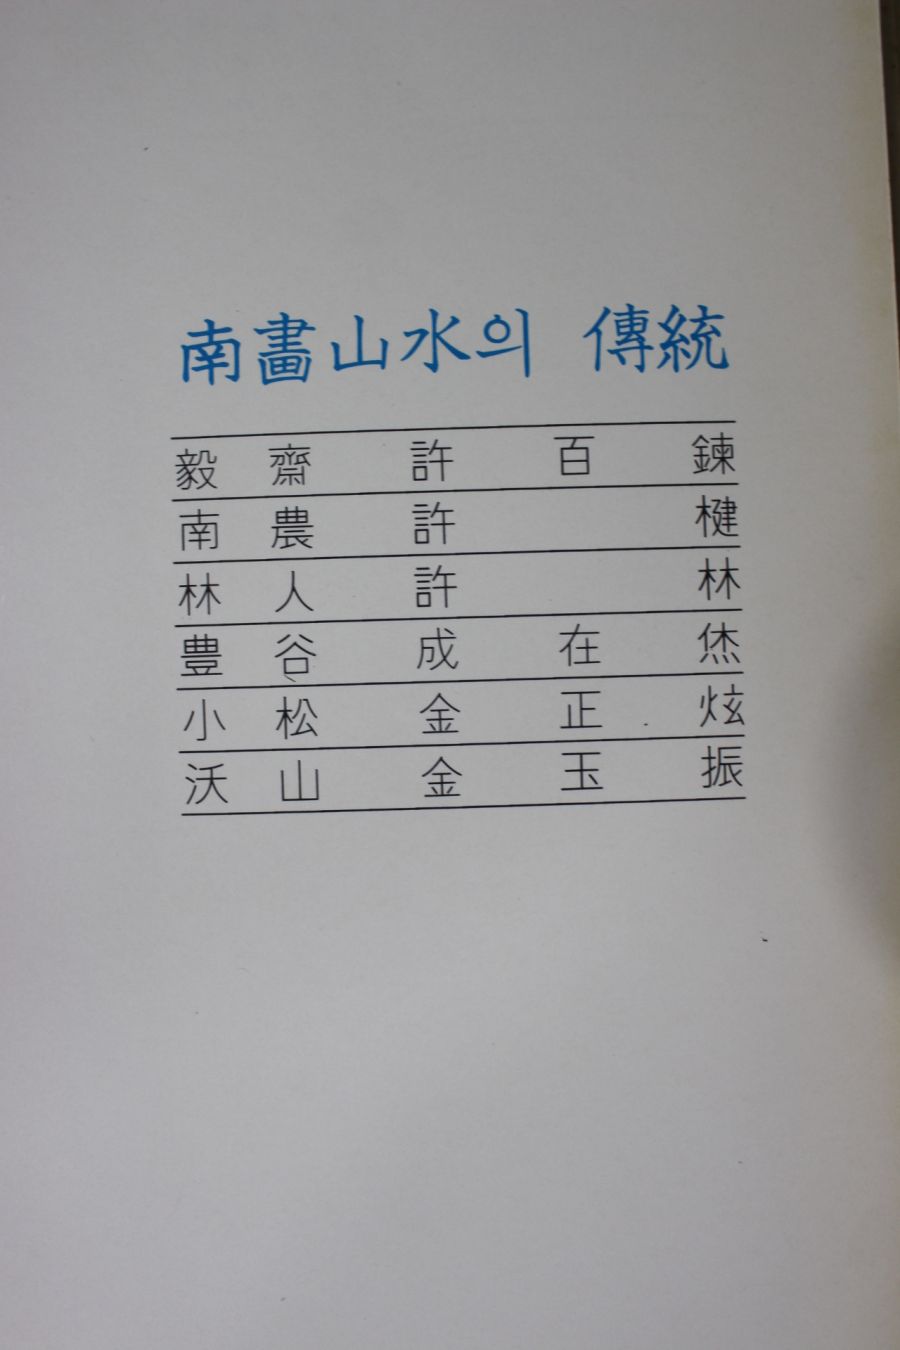 南畵山水의 傳統
毅齋 許百鍊
南農 許楗
林人 許林
豊谷 成在烋
小松 金正炫
沃山 金玉振